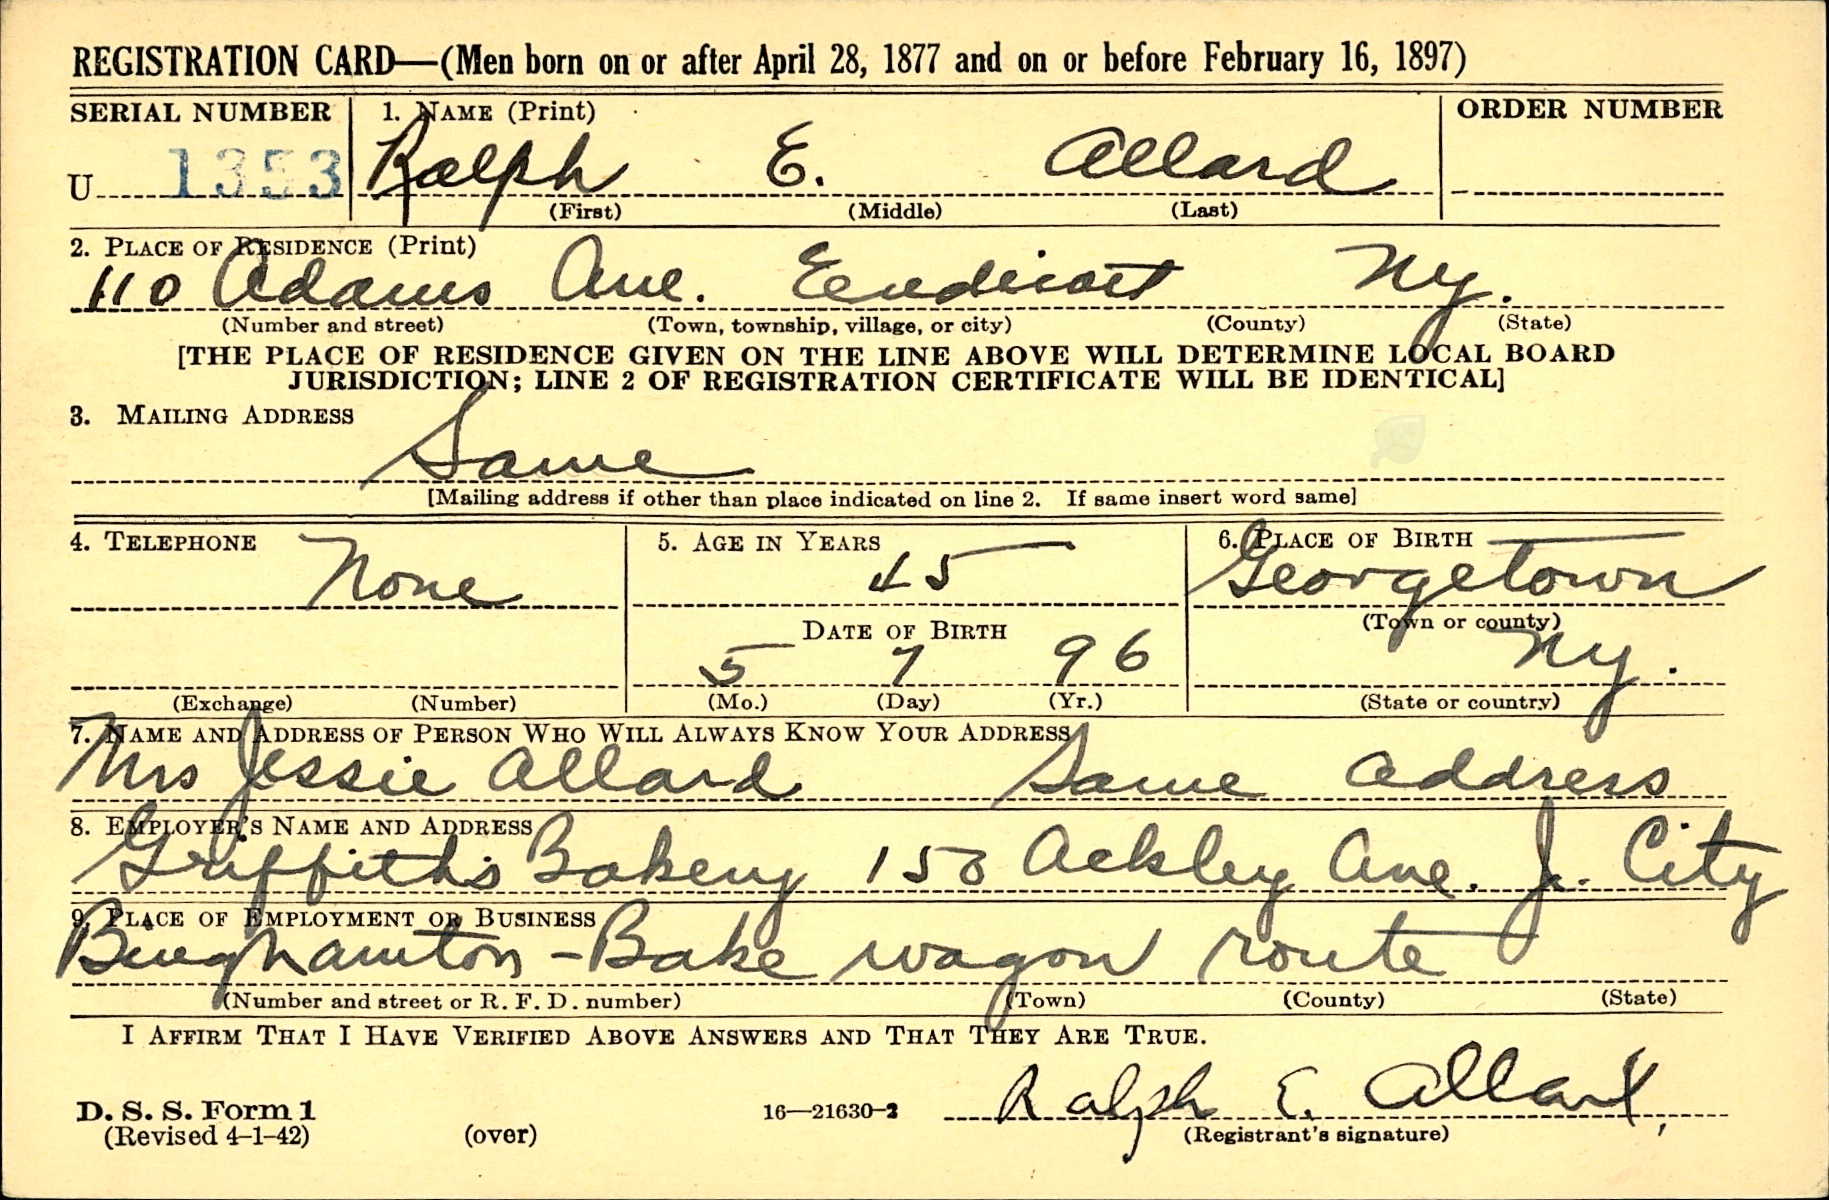 REGISTRATION CARD—(Men born on or after April 28, 1877 and on or before February 16, 1897)
SERIAL NUMBER 1. NAME (Print) ORDER NUMBER
U 1353 Ralph E. Allard
(First) (Middle) (Last)
2. PLACE OF RESIDENCE (Print)
110 Adams Ave. Endicott NY.
(Number and street) (Town, township, village, or city) (County) (State)
[THE PLACE OF RESIDENCE GIVEN ON THE LINE ABOVE WILL DETERMINE LOCAL BOARD
JURISDICTION; LINE 2 OF REGISTRATION CERTIFICATE WILL BE IDENTICAL]
3. MAILING ADDRESS
Same
[Mailing address if other than place indicated on line 2. If same insert word same]
4. TELEPHONE 5. AGE IN YEARS 6. PLACE OF BIRTH
None 45 Georgetown
(Town or county)
DATE OF BIRTH
5 7 96 NY.
(Exchange) (Number) (Mo.) (Day) (Yr.) (State or country)
7. NAME AND ADDRESS OF PERSON WHO WILL ALWAYS KNOW YOUR ADDRESS
Mrs Jessie Allard Same address
8. EMPLOYER'S NAME AND ADDRESS
Griffith's Bakery 150 Ackley Ave. J. City
9. PLACE OF EMPLOYMENT OR BUSINESS
Binghamton - Bake wagon route
(Number and street or R. F. D. number) (Town) (County) (State)
I AFFIRM THAT I HAVE VERIFIED ABOVE ANSWERS AND THAT THEY ARE TRUE.
Ralph E. Allard,
D. S. S. Form 1 16—21630-2
(Revised 4-1-42) (over) (Registrant's signature)